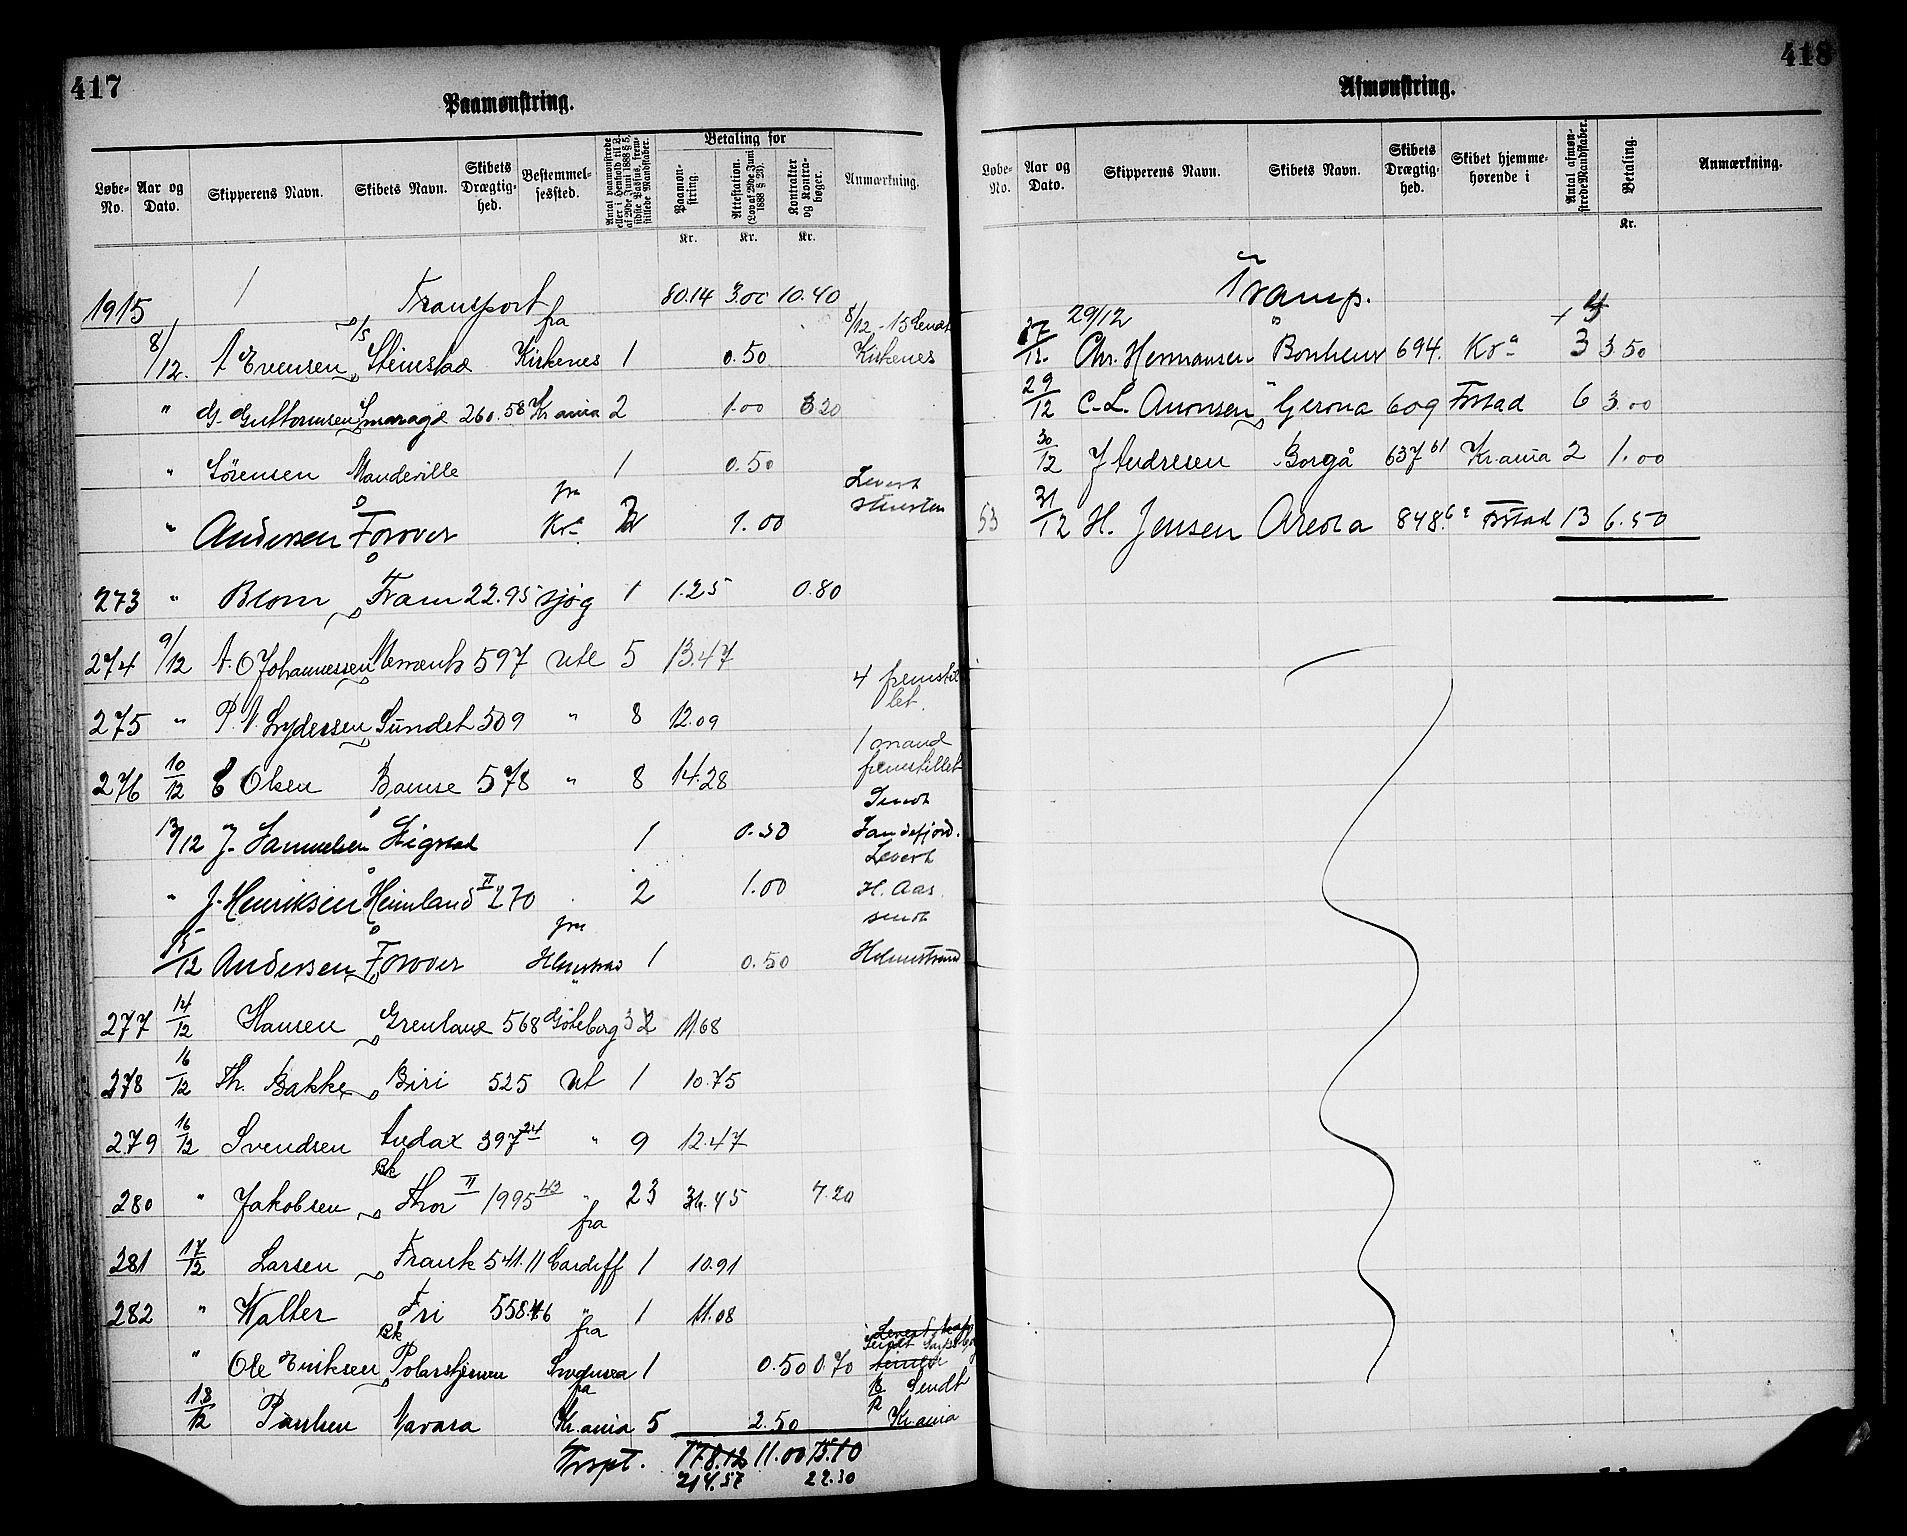 417
Paamønstring.
Løbe-No. Aar og Dato. Skipperens Navn. Skibets Navn. Skibets Drægtig-hed. Bestemmel-sessted. Antal paamønstrede eller i Henhold til L. af 29de Juni 1888 § 5, sidste Passus, frem-stillede Mandskaber. Betaling for Paamøn-string. Attestation. (Lov af 29de Juni 1888 § 23). Kontrakter og Kontra-bøger. Anmærkning.
Kr. Kr. Kr.
1915 Transport 80.14 3.00 10.40
8/12 A Evensen D/S Steinstad fra Kirkenes 1 0.50 8/12 - 15 Sendt Kirkenes
" G. Guttormsen Smaragd 260.58 Kr.ania 2 1.00 3 20
" Sørensen Mandeville 1 0.50
" Andersen Forover fra Kr.a 2 1.00 Levert
273 " Blom Fram 22.95 sjøg 1 1.25 0.80
274 9/12 A. O Johannessen 597 ute 5 13.47
275 " P. A Lydersen Sundet 509 " 8 12.09 4 fremstillet
276 10/12 E Olsen Bamse 578 " 8 14.28 1 mand fremstillet
13/12 J. Samuelsen Stigstad 1 0.50 Sendt Sandefjord.
" J. Henriksen Heimland II 270 2 1.00 Levert H. Aas
15/12 Andersen Forover fra 1 0.50 sendt Holmestrand
277 14/12 Hansen Grenland 568 Göteborg 3 2 11.68
278 16/12 Th. Bakke Biri 525 ut 1 10.75
279 16/12 Svendsen Audax 397 24 " 9 12.47
280 " Jakobsen Bk Thor II 1995 43 " 23 36.45 7.20
281 17/12 Larsen Frank 541.11 fra Cardiff 1 10.91
282 " Walter Fri 558.46 " 1 11.08
" Ole Eriksen Bk Polarstjernen fra Swansea 1 0.50 0.70 Sendt
18/12 Paulsen Navara fra Kr.ania 5 2.50 Sendt Kr.ania
Trspt. 178.12 11.00 15.10
214.57 22.30
418
Afmønstring.
Løbe-No. Aar og Dato. Skipperens Navn. Skibets Navn. Skibets Drægtig-hed. Skibet hjemme-hørende i Antal afmøn-strede Mandskaber. Betaling. Anmærkning.
Kr.
Transp.
29/12
27/12. Chr. Hermansen Bonheur 694. Kr.a 3 3 50
29/12 C. L. Aronsen Gerona 609 Fstad 6 3.00
30/12 J Andresen Borgå 637 61 Kr.ania 2 1.00
53 31/12 H. Jensen Areola 848. Fstad 13 6.50